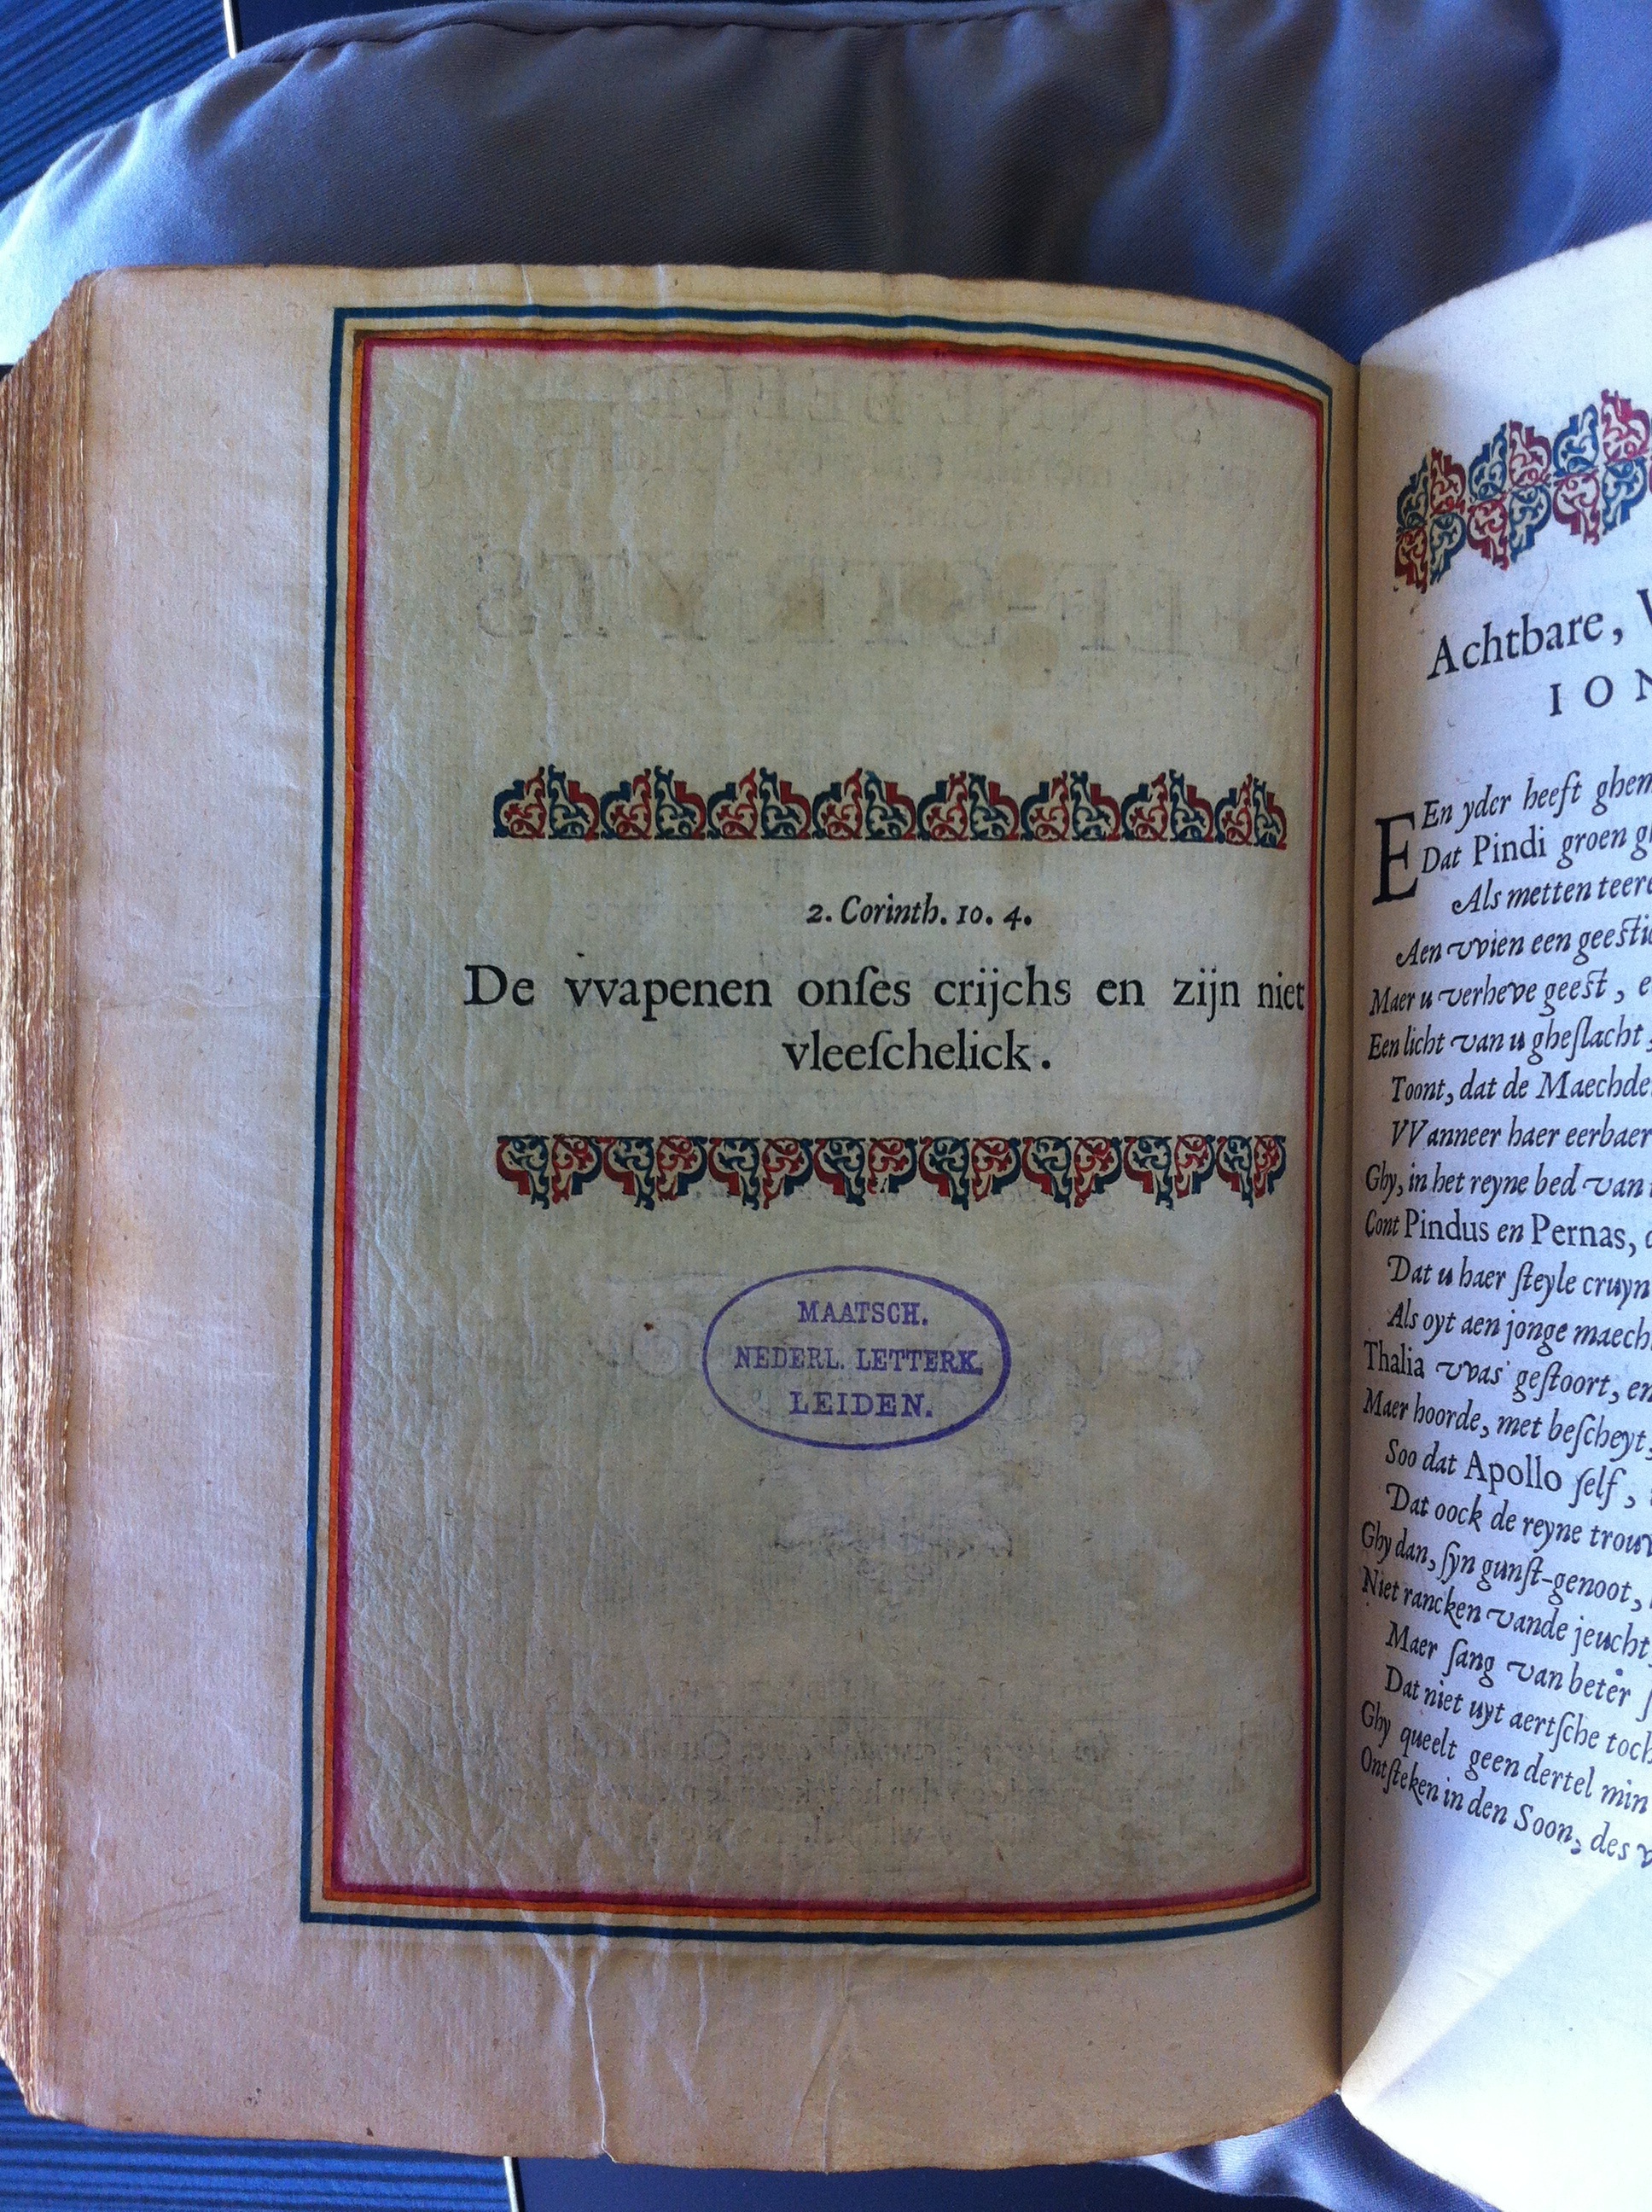 2. Corinth. 10. 4.
De vvapenen onſes crijchs en zijn niet
vleeſchelick.
MAATSCH.
NEDERL. LETTERK.
LEIDEN.
Achtbare,
ION
EEn yder heeft
Dat Pindi groen
Als metten
Aen vvien een
Maer u verheve geest,
Een licht van u gheſlacht,
Toont, dat de
VVanneer haer
Ghy, in het reyne bed van
Cont Pindus en Pernas,
Dat u haer ſteyle
Als oyt aen jonge
Thalia vvas geſtoort,
Maer hoorde, met beſcheyt,
Soo dat Apollo ſelf,
Dat oock de reyne
Ghy dan, ſyn gunſt-genoot,
Niet rancken vande jeucht,
Maer ſang van beter
Dat niet uyt aertſche
Ghy queelt geen dertel
Ontſteken in den Soon, des